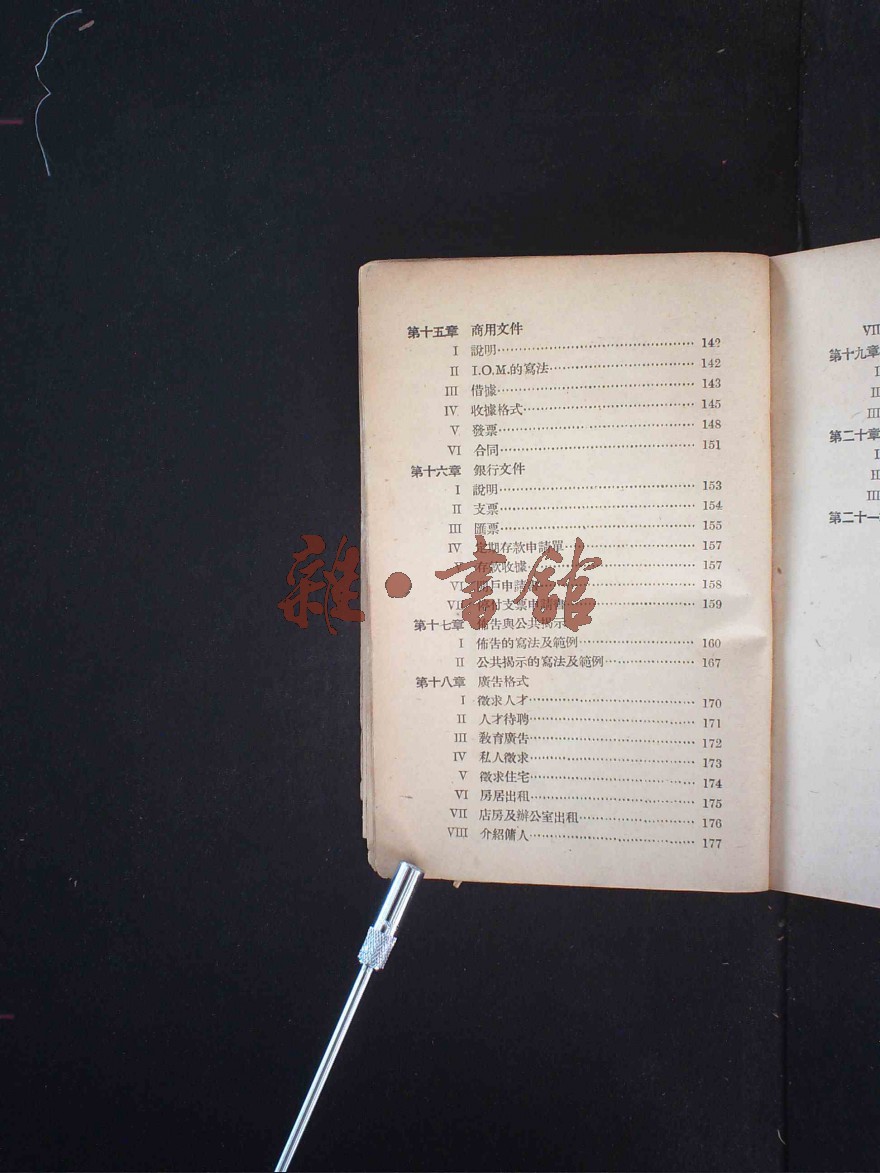 第十五章 商用文件
I 說明 142
II I.O.M.的寫法 142
III 借據 143
IV 收據格式 145
V 發票 148
VI 合同 151
第十六章 銀行文件
I 說明 153
II 支票 154
III 匯票 155
IV 定期存款申請單 157
V 存款收據 157
VI 開戶申請 158
VII 支票申請 159
第十七章 佈告與公共揭示
I 佈告的寫法及範例 160
II 公共揭示的寫法及範例 167
第十八章 廣告格式
I 徵求人才 170
II 人才待聘 171
III 教育廣告 172
IV 私人徵求 173
V 徵求住宅 174
VI 房居出租 175
VII 店房及辦公室出租 176
VIII 介紹傭人 177
雜·書館
VII
第十九章
I
II
III
第二十章
I
II
III
第二十一